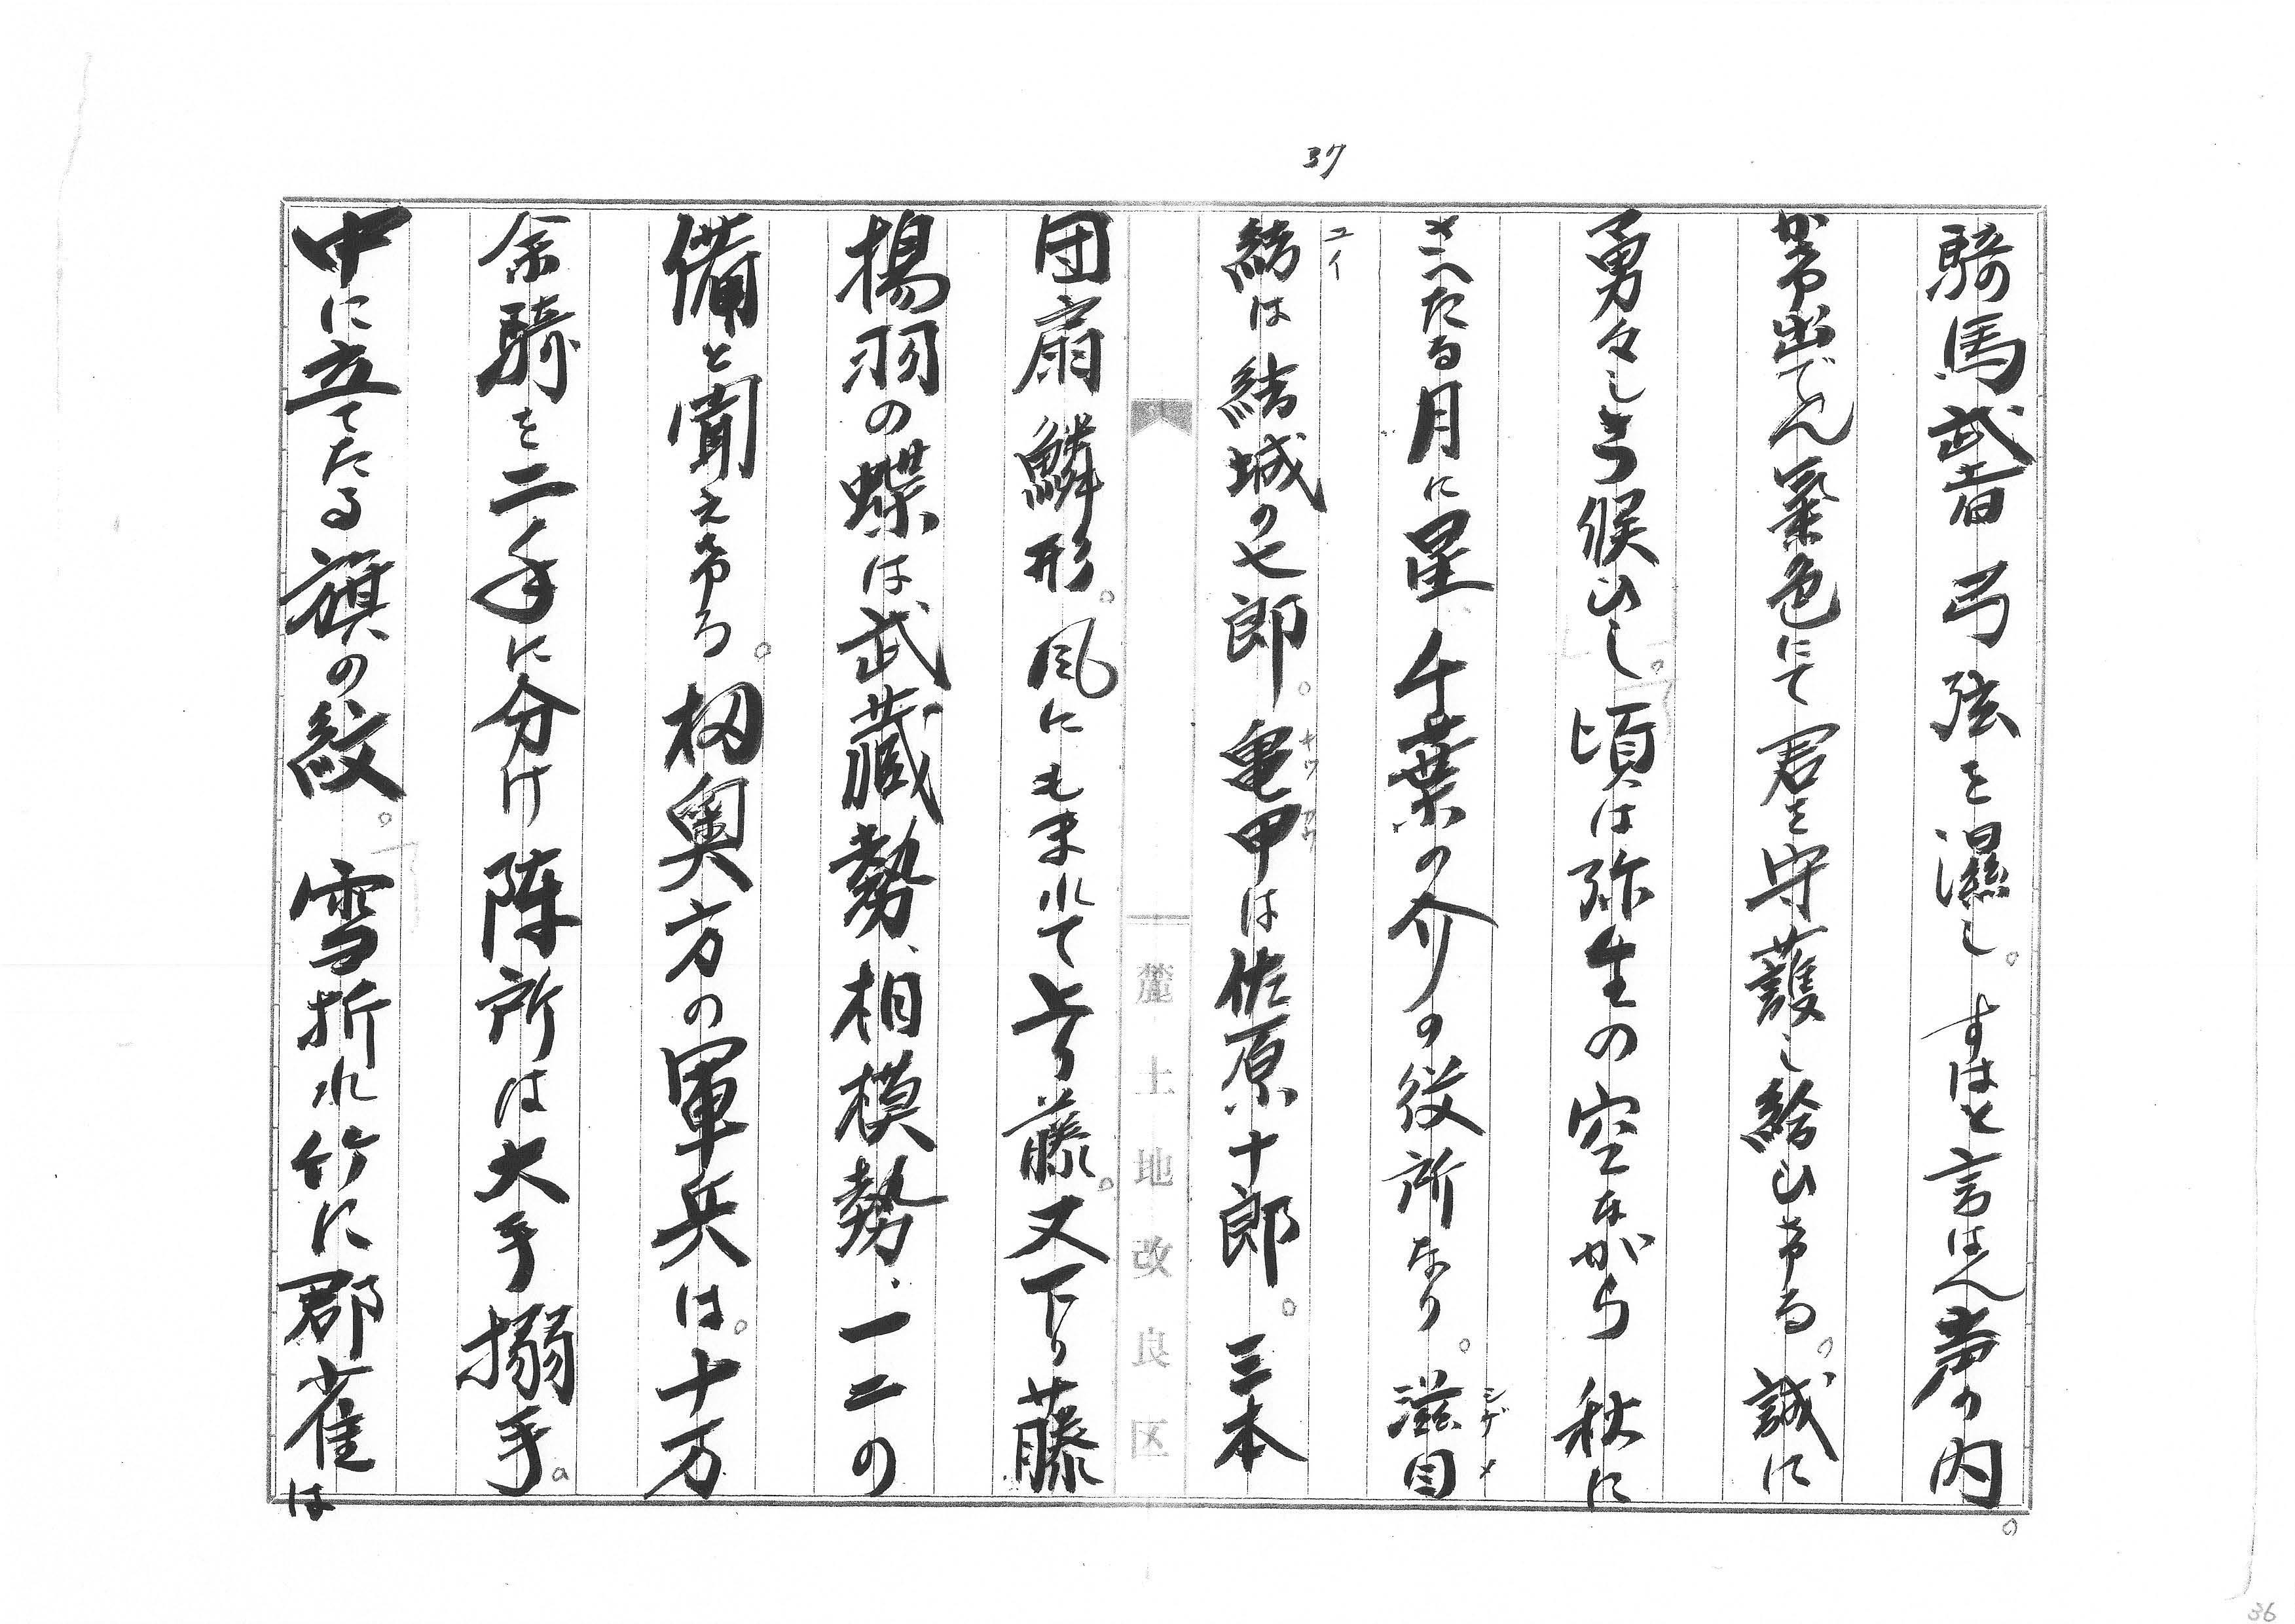 37
騎馬武者弓弦を濕し。すはと言はん声の内。
かけ出でん氣色にて君を守護し給ひける。誠に
勇々しきう候ひし。頃は弥生の空ながら秋に
さへたる月に星千葉の介の役所なり。滋目
シゲメ
結は結城の七郎。亀甲は佐原十郎。三本
ユイ
団扇鱗形。風にもまれて上り藤。又下り藤
揚羽の蝶は武藏勢、相模勢、一二の
備と聞えける。扨奥方の軍兵は。十万
余騎を二手に分け陣所は大手搦手。
中に立てたる旗の紋。雪折れ竹に郡雀は
麓土地改良区
36